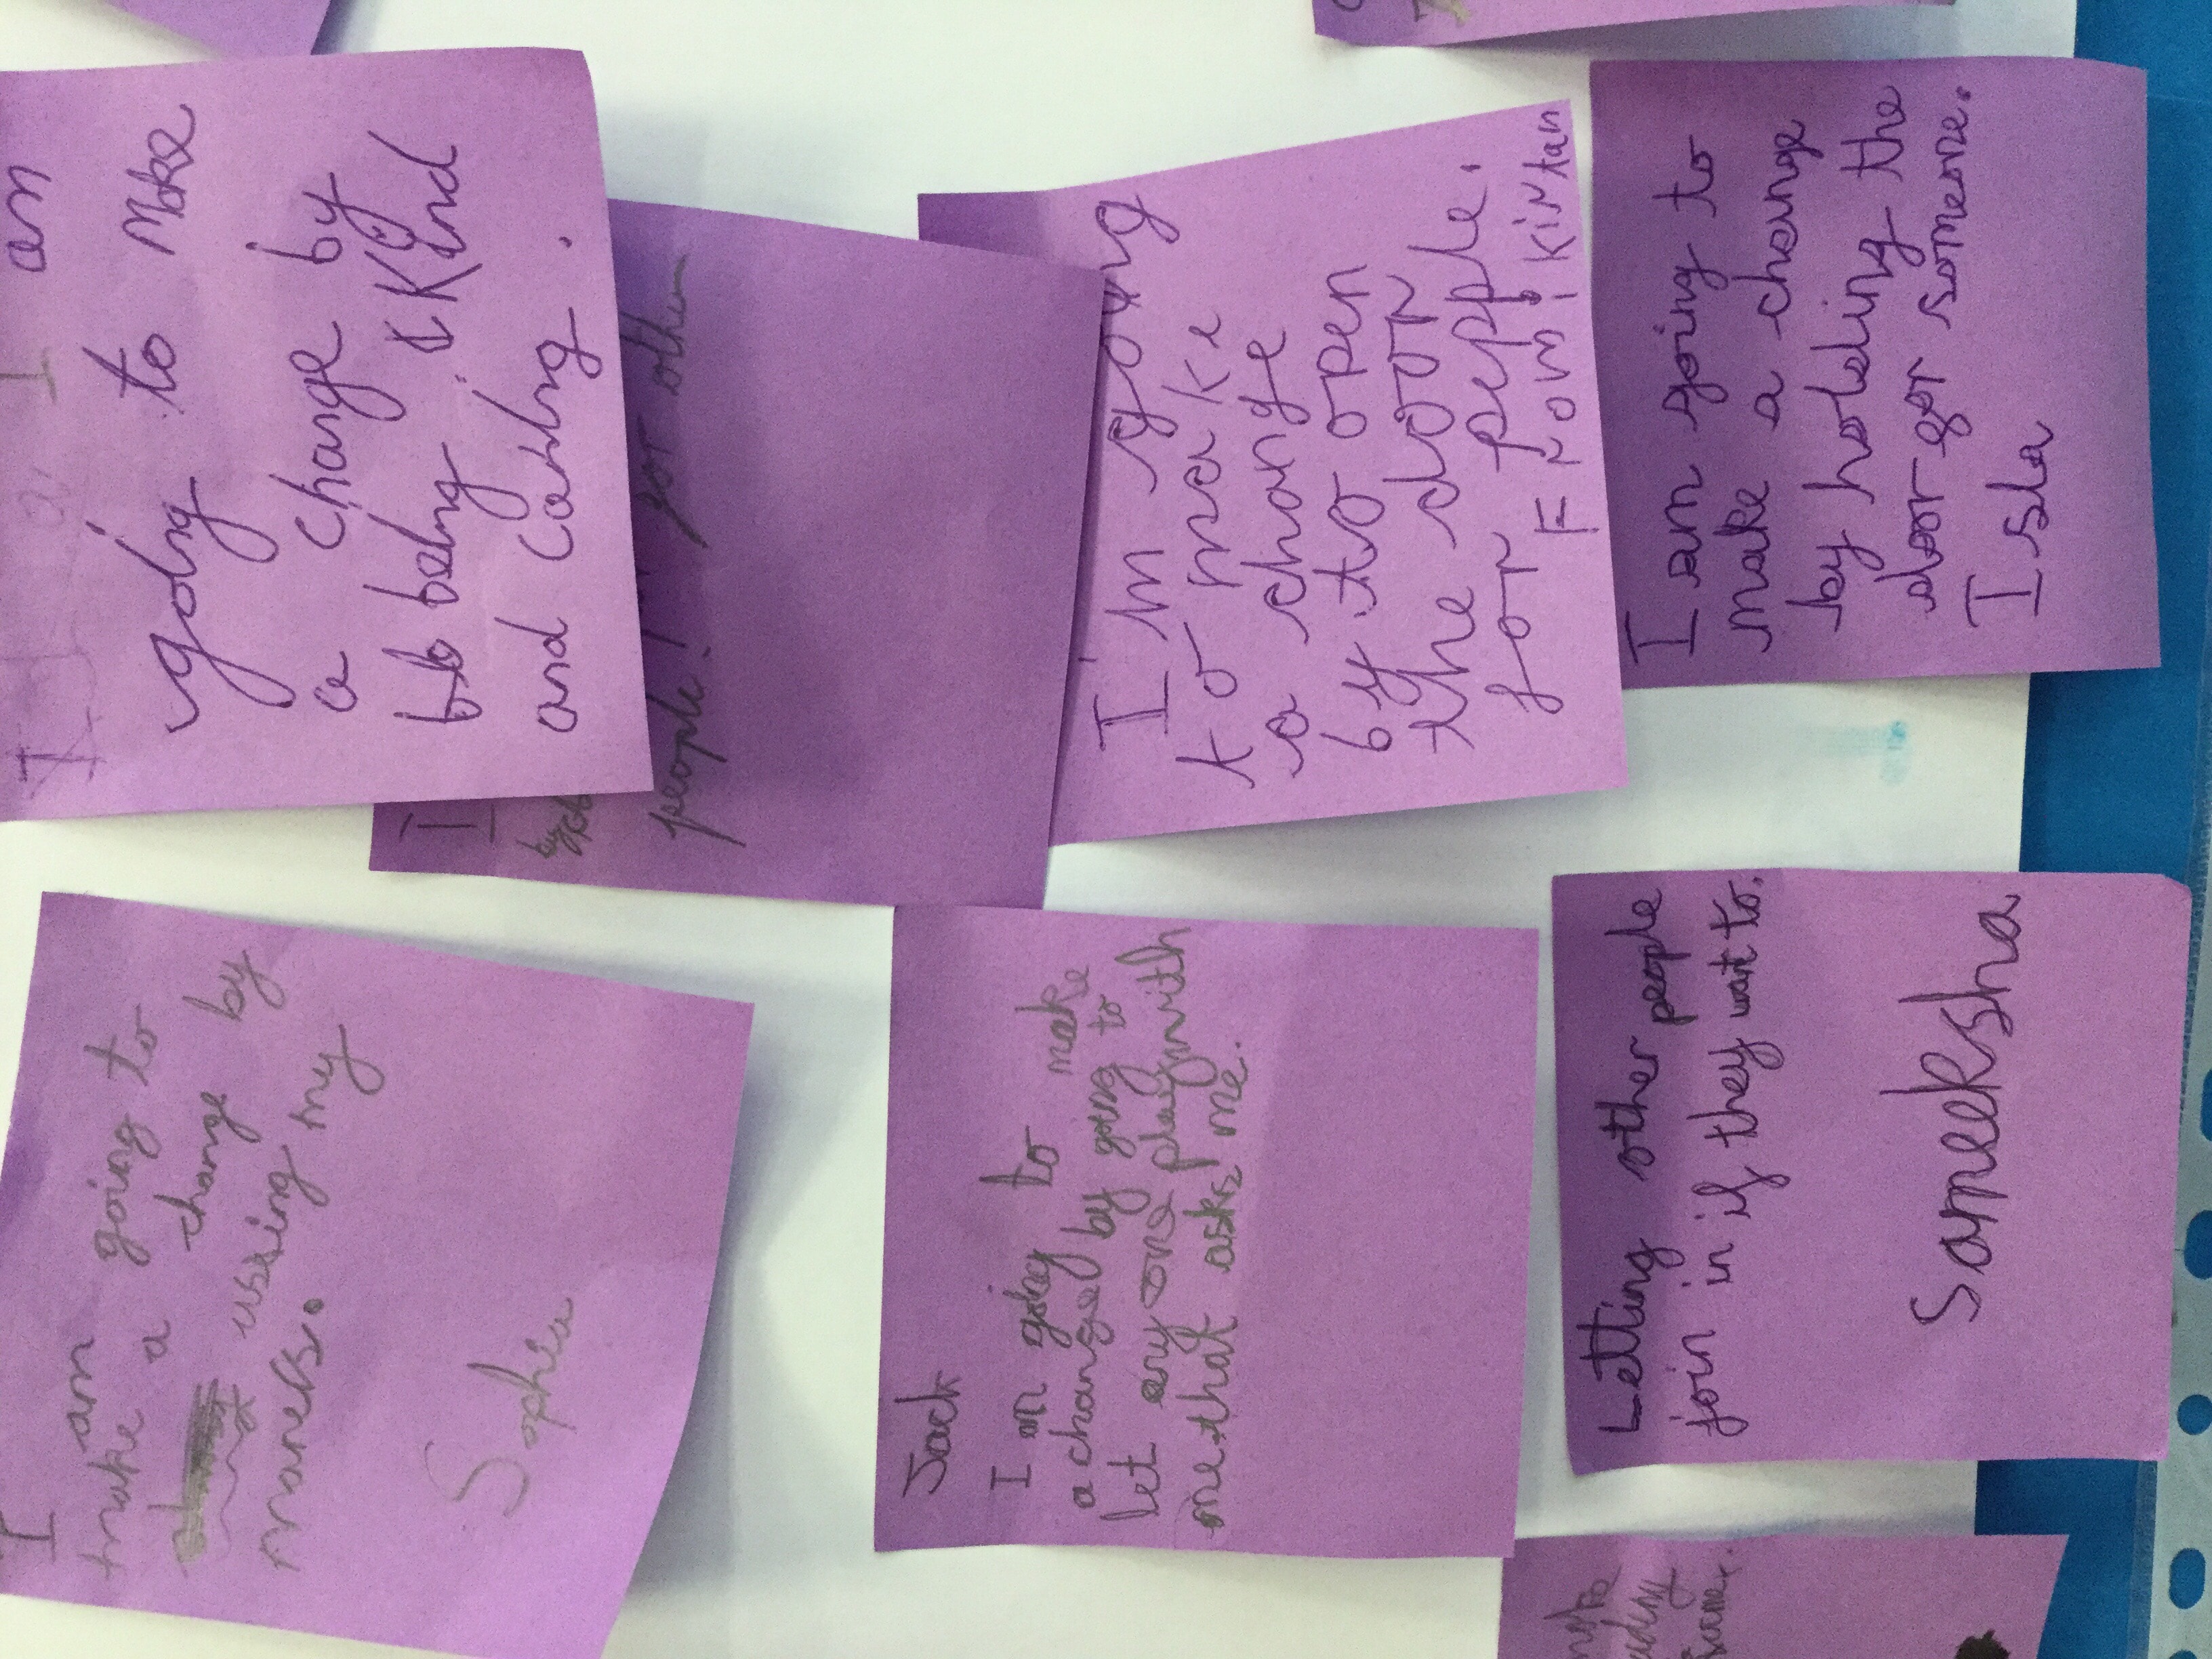 I am going to
make a change by
using my
maners.
Sophia
Jack
I am going to make
a change by going to
let eny one play with
me that asks me.
Letting other people
join in if they want to.
Sameeksha
I am
going to make
a change by
being kind
and caring.
I
by
for other
people!
I'm going
to make
a change
by to open
the door
for people.
From: Kirtan
I am going to
make a change
by holding the
door for someone.
Isla
same.